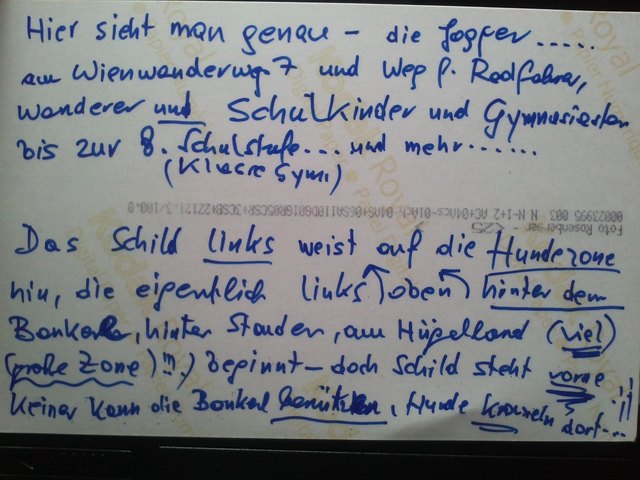 Hier sieht man genau – die Jogger.....
am Wienwanderweg 7 und Weg f. Radfahrer,
wanderer und Schulkinder und Gymnasiasten
bis zur 8. Schulstufe... und mehr......
(Klasse Gym.)
00023995 003 N N-N 1+2 AC+04Acs-01Ach-04AS+06SA1100D601GR05CSR+3CSB+2Z12
Foto Rosenberger <25
Das Schild links weist auf die Hundezone
hin, die eigentlich links oben hinter dem
Bankerl, hinter Stauden, am Hügelland (viel
(große Zone)!!!,) beginnt – doch Schild steht vorne!!
Keiner kann die Bankerl benützen, Hunde dort...
Royal
Kodak